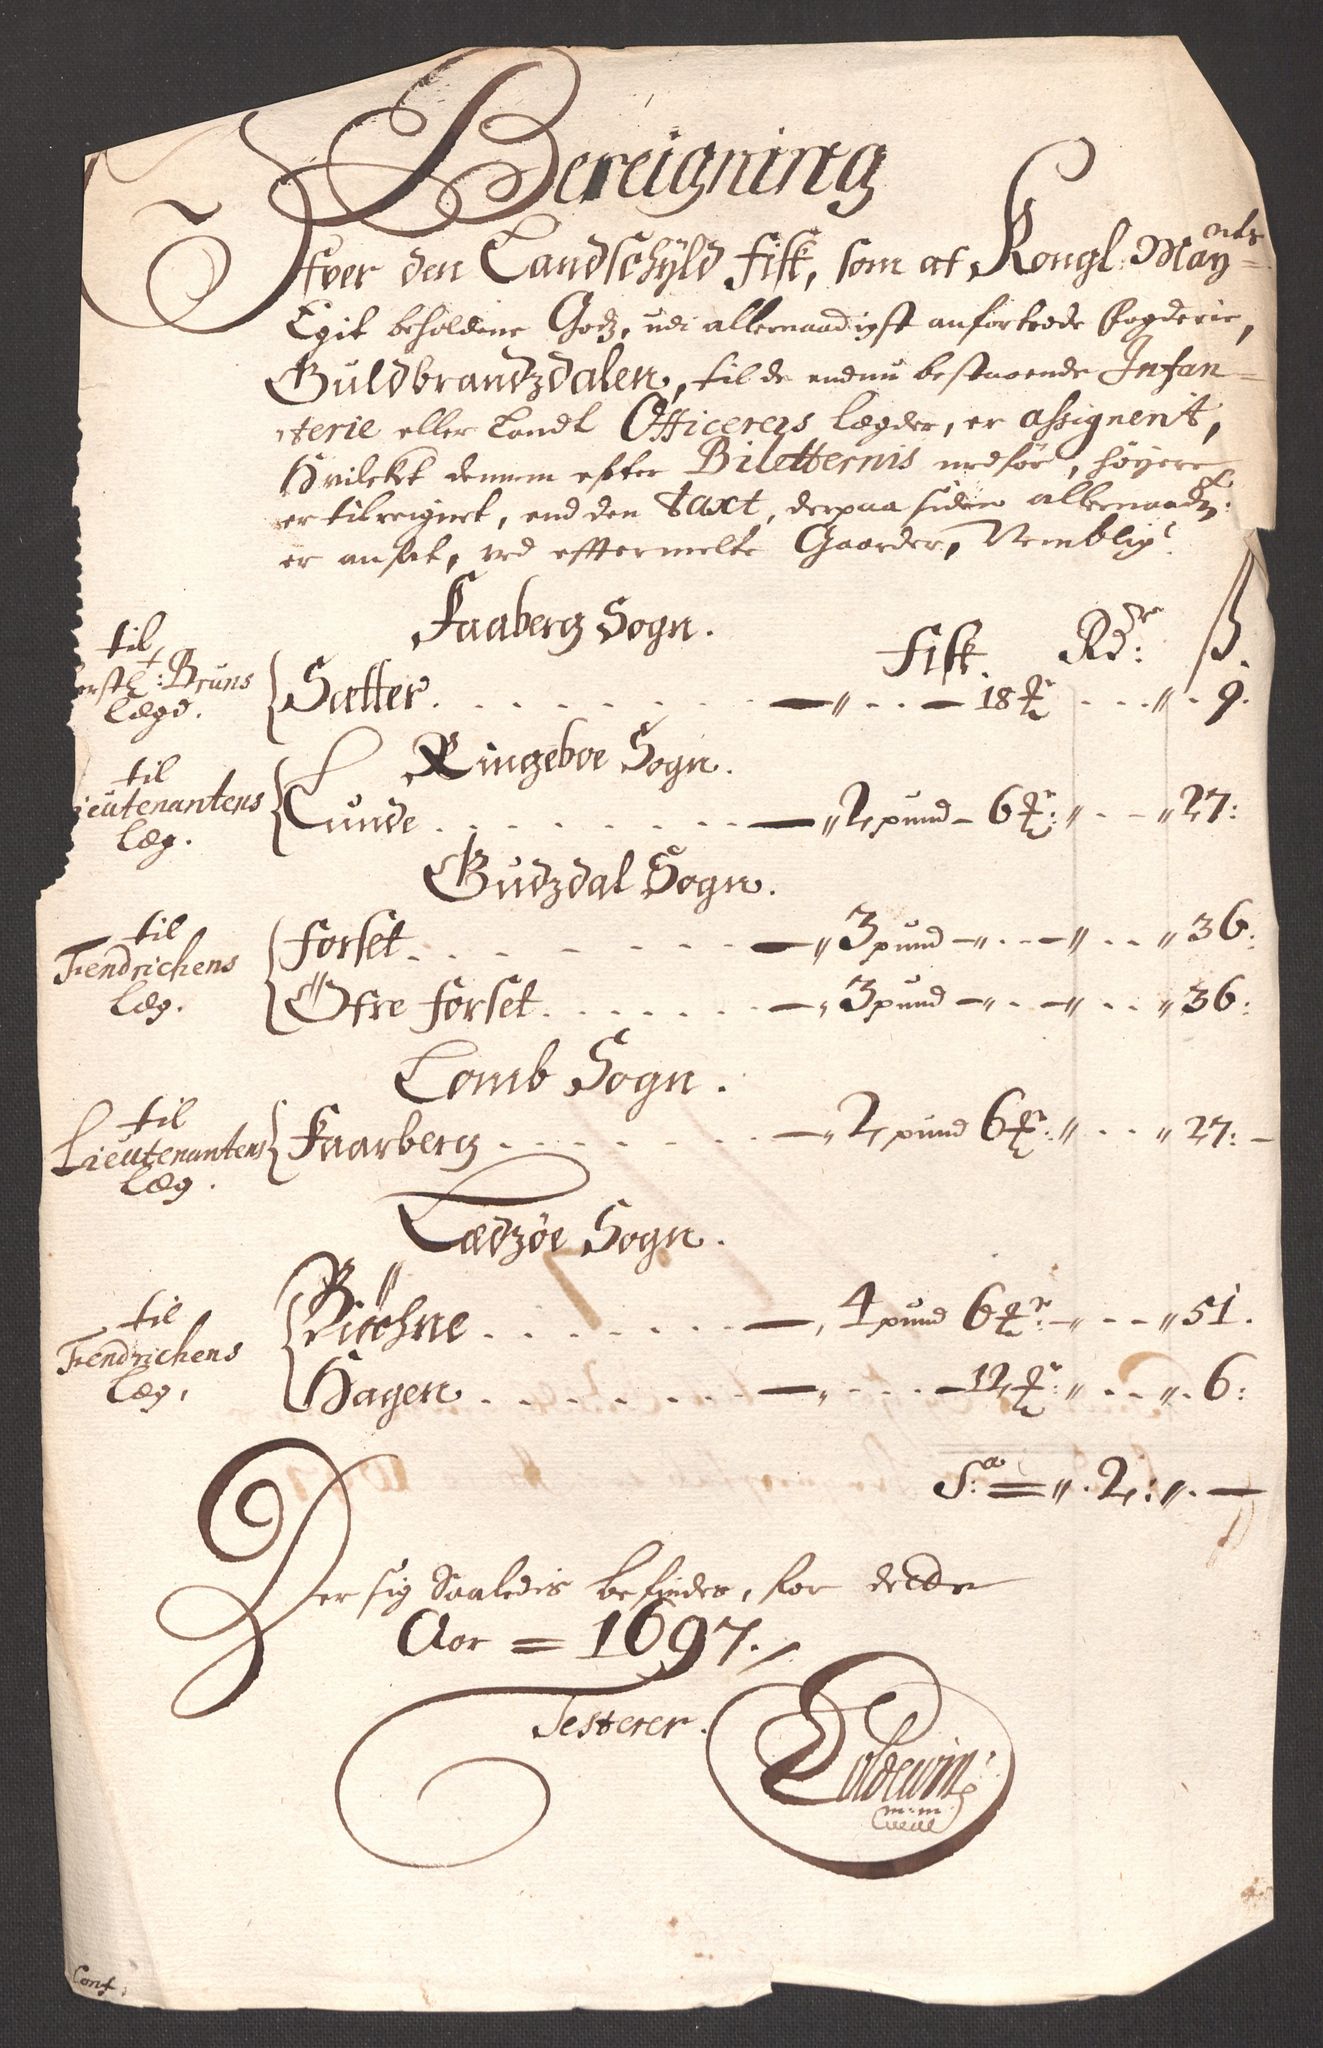 Bereigning
Ofver den Landschÿld fisk, som af Kongl: Mayts
Egit beholdene Godz, udi allernaadigst anfortrode Fogderie,
Guldbrandzdalen, til de endnu bestaaende Infan-
terie eller Landt Officerers Legder, er assignerit,
Hvilcket dennem efter Biletternis medför, höyere
er tilreignet, end den Taxt, derpaa siden allernaadigst:
er ansat, ved efftermelte Gaarder, Nemblig:
Faaberg Sogn.
Fisk. Rdr: ß.
til
Bruns
Lægd.
Sætter. 18 ℔r 9.
Ringeboe Sogn.
til
Lieutenantens
Læg.
Lunde 2 pund 6 ℔r: 27:
Gudzdal Sogn.
til
Fendrichens
Læg.
Forset. 3 pund 36:
Öfre Forset. 3 pund 36:
Lomb Sogn.
til
Lieutenantens
Læg.
Faarberg 2 pund 6 ℔r: 27:
Lædzöe Sogn.
til
Fendrichens
Læg.
Biöhne 4 pund 6 ℔r: 51.
Hagen 12 ℔r: 6:
S:a = 2:
Der sig Saaledis befindes, for dette
Aar = 1697.
Testerer.
Eoldewin
m: m:
Conf: